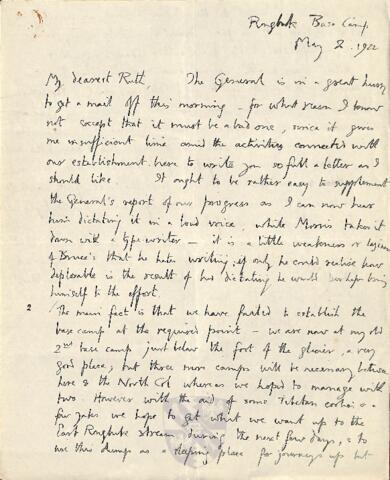 Rongbuk Base Camp
May 2. 1922
My dearest Ruth, The General is in a great hurry
to get a mail off this morning – for what reason I know
not except that it must be a bad one, since it gives
me insufficient time amid the activities connected with
our establishment here to write you so full a letter as I
should like. It ought to be rather easy to supplement
the General's report of our progress as I can now hear
him dictating it in a loud voice, while Morris takes it
down with a typewriter – it is a little weakness or
of Bruce's that he hates writing; if only he could realise how
deplorable is the result of his dictating he would perhaps bring
himself to the effort.
2 The main fact is that we have failed to establish the
base camp at the required point – we are now at my old
2nd base camp just below the foot of the glacier, a very
good place; but three more camps will be necessary between
here & the North Col whereas we hoped to manage with
two. However with the aid of some Tibetan coolies & a
few yaks we hope to get what we want up to the
East Rongbuk stream during the next few days, & to
use this dump as a sleeping place for journeys up but